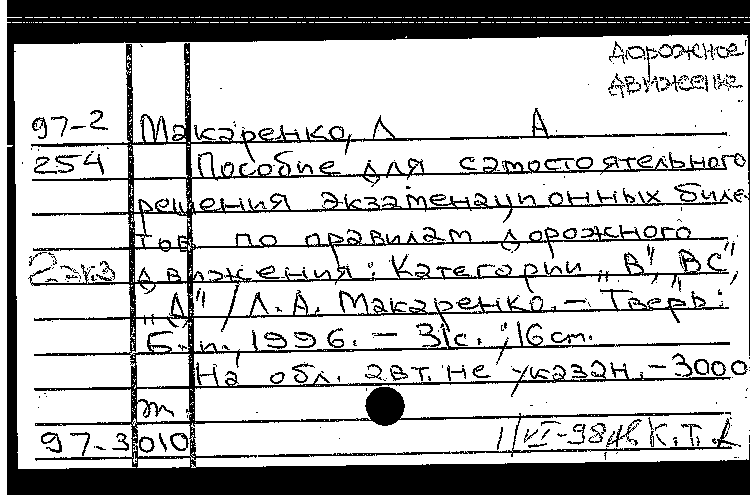 Дорожное
движение
97-2 Макаренко, Л А
254 Пособие для самостоятельного
решения экзаменационных биле-
тов по правилам дорожного
2 экз движения: Категории „В", „ВС",
„Д" / Л. А. Макаренко. – Тверь:
Б. и., 1996. – 31с. ; 16 см.
На обл. авт. не указан. – 3000
т.
97-3010 1/VI-98 К. Т.